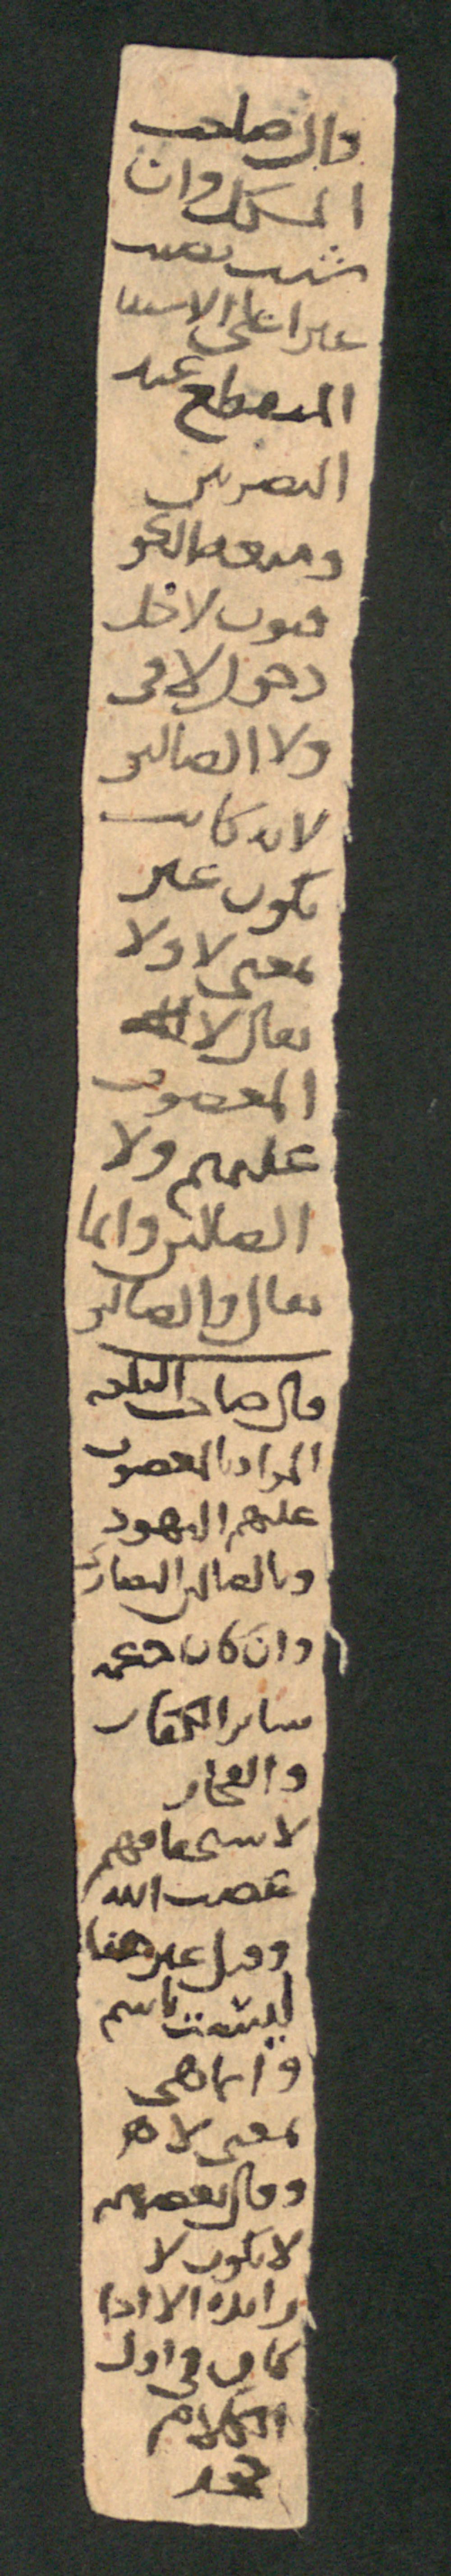 وقال صاحب
المشكل وان
شيت نصبت
غيرا على الاستثنا
المنقطع عند
البصريين
ومنعه الكو
فيون لاجل
دخول لا في
ولا الضالين
لانه كانت
تكون غير
بمعنى لا ولا
يقال لا
المغضوب
عليهم ولا
الضالين وانما
يقال والضالين
قال صاحب
المراد بالمغضوب
عليهم اليهود
وبالضالين النصارى
وان كان
ساير الكفار
والفجار
لاستحقاقهم
غضب الله
وقيل غير هنا
ليست باسم
وانما هي
بمعنى لا
وقال بعضهم
لا يكون لا
زايدة الا اذا
كان في اول
الكلام